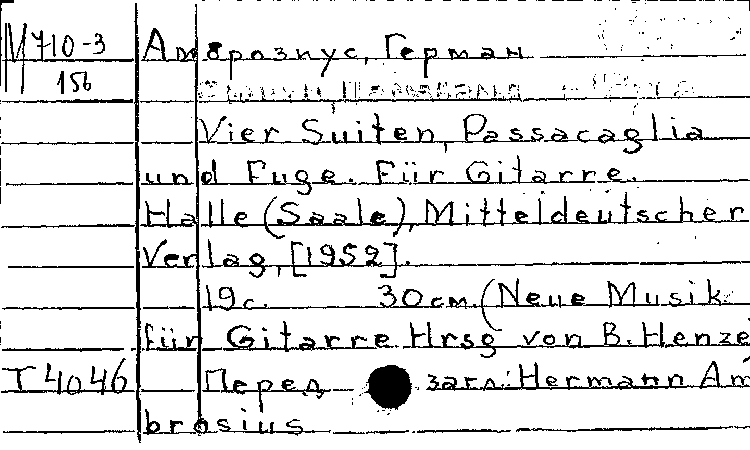 М 710-3 Амброзиус, Герман
156
Vier Suiten, Passacaglia
und Fuge. Für Gitarre.
Halle (Saale), Mitteldeutscher
Verlag, [1952].
19с. 30см. (Neue Musik
für Gitarre Hrsg von B. Henze
T4046 Перед загл: Hermann Am
brosius